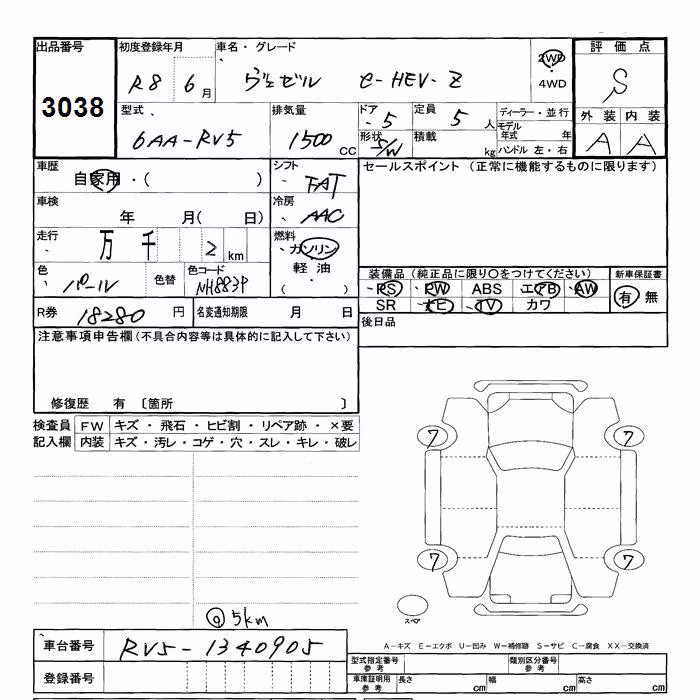 出品番号 初度登録年月 車名・グレード 評価点
3038 R8 6月 ヴェゼル e-HEV-Z 2WD 4WD S
型式 排気量 ドア 定員 ディーラー・並行 外装 内装
6AA-RV5 1500 CC 5 5人 モデル年式 年 A A
形状 5/W 積載 kg ハンドル 左・右
車歴 自家用・( ) シフト FAT セールスポイント (正常に機能するものに限ります)
車検 年 月( 日) 冷房 AAC
走行 万 千 2 km 燃料 ガソリン 軽油 ( )
色 パール 色替 色コード NH883P
装備品(純正品に限り○をつけてください) 新車保証書
PS PW ABS エアB AW 有 無
SR ナビ TV カワ
R券 18280 円 名変通知期限 月 日 後日品
注意事項申告欄(不具合内容等は具体的に記入して下さい)
修復歴 有 〔箇所 〕
検査員 FW キズ・飛石・ヒビ割・リペア跡・×要
記入欄 内装 キズ・汚レ・コゲ・穴・スレ・キレ・破レ
7 7
7 7
スペア
@5km
A-キズ E-エクボ U-凹み W-補修跡 S-サビ C-腐食 XX-交換済
車台番号 RV5-1340905
型式指定番号 参考 類別区分番号 参考
登録番号 車庫証明用 参考 長さ cm 幅 cm 高さ cm